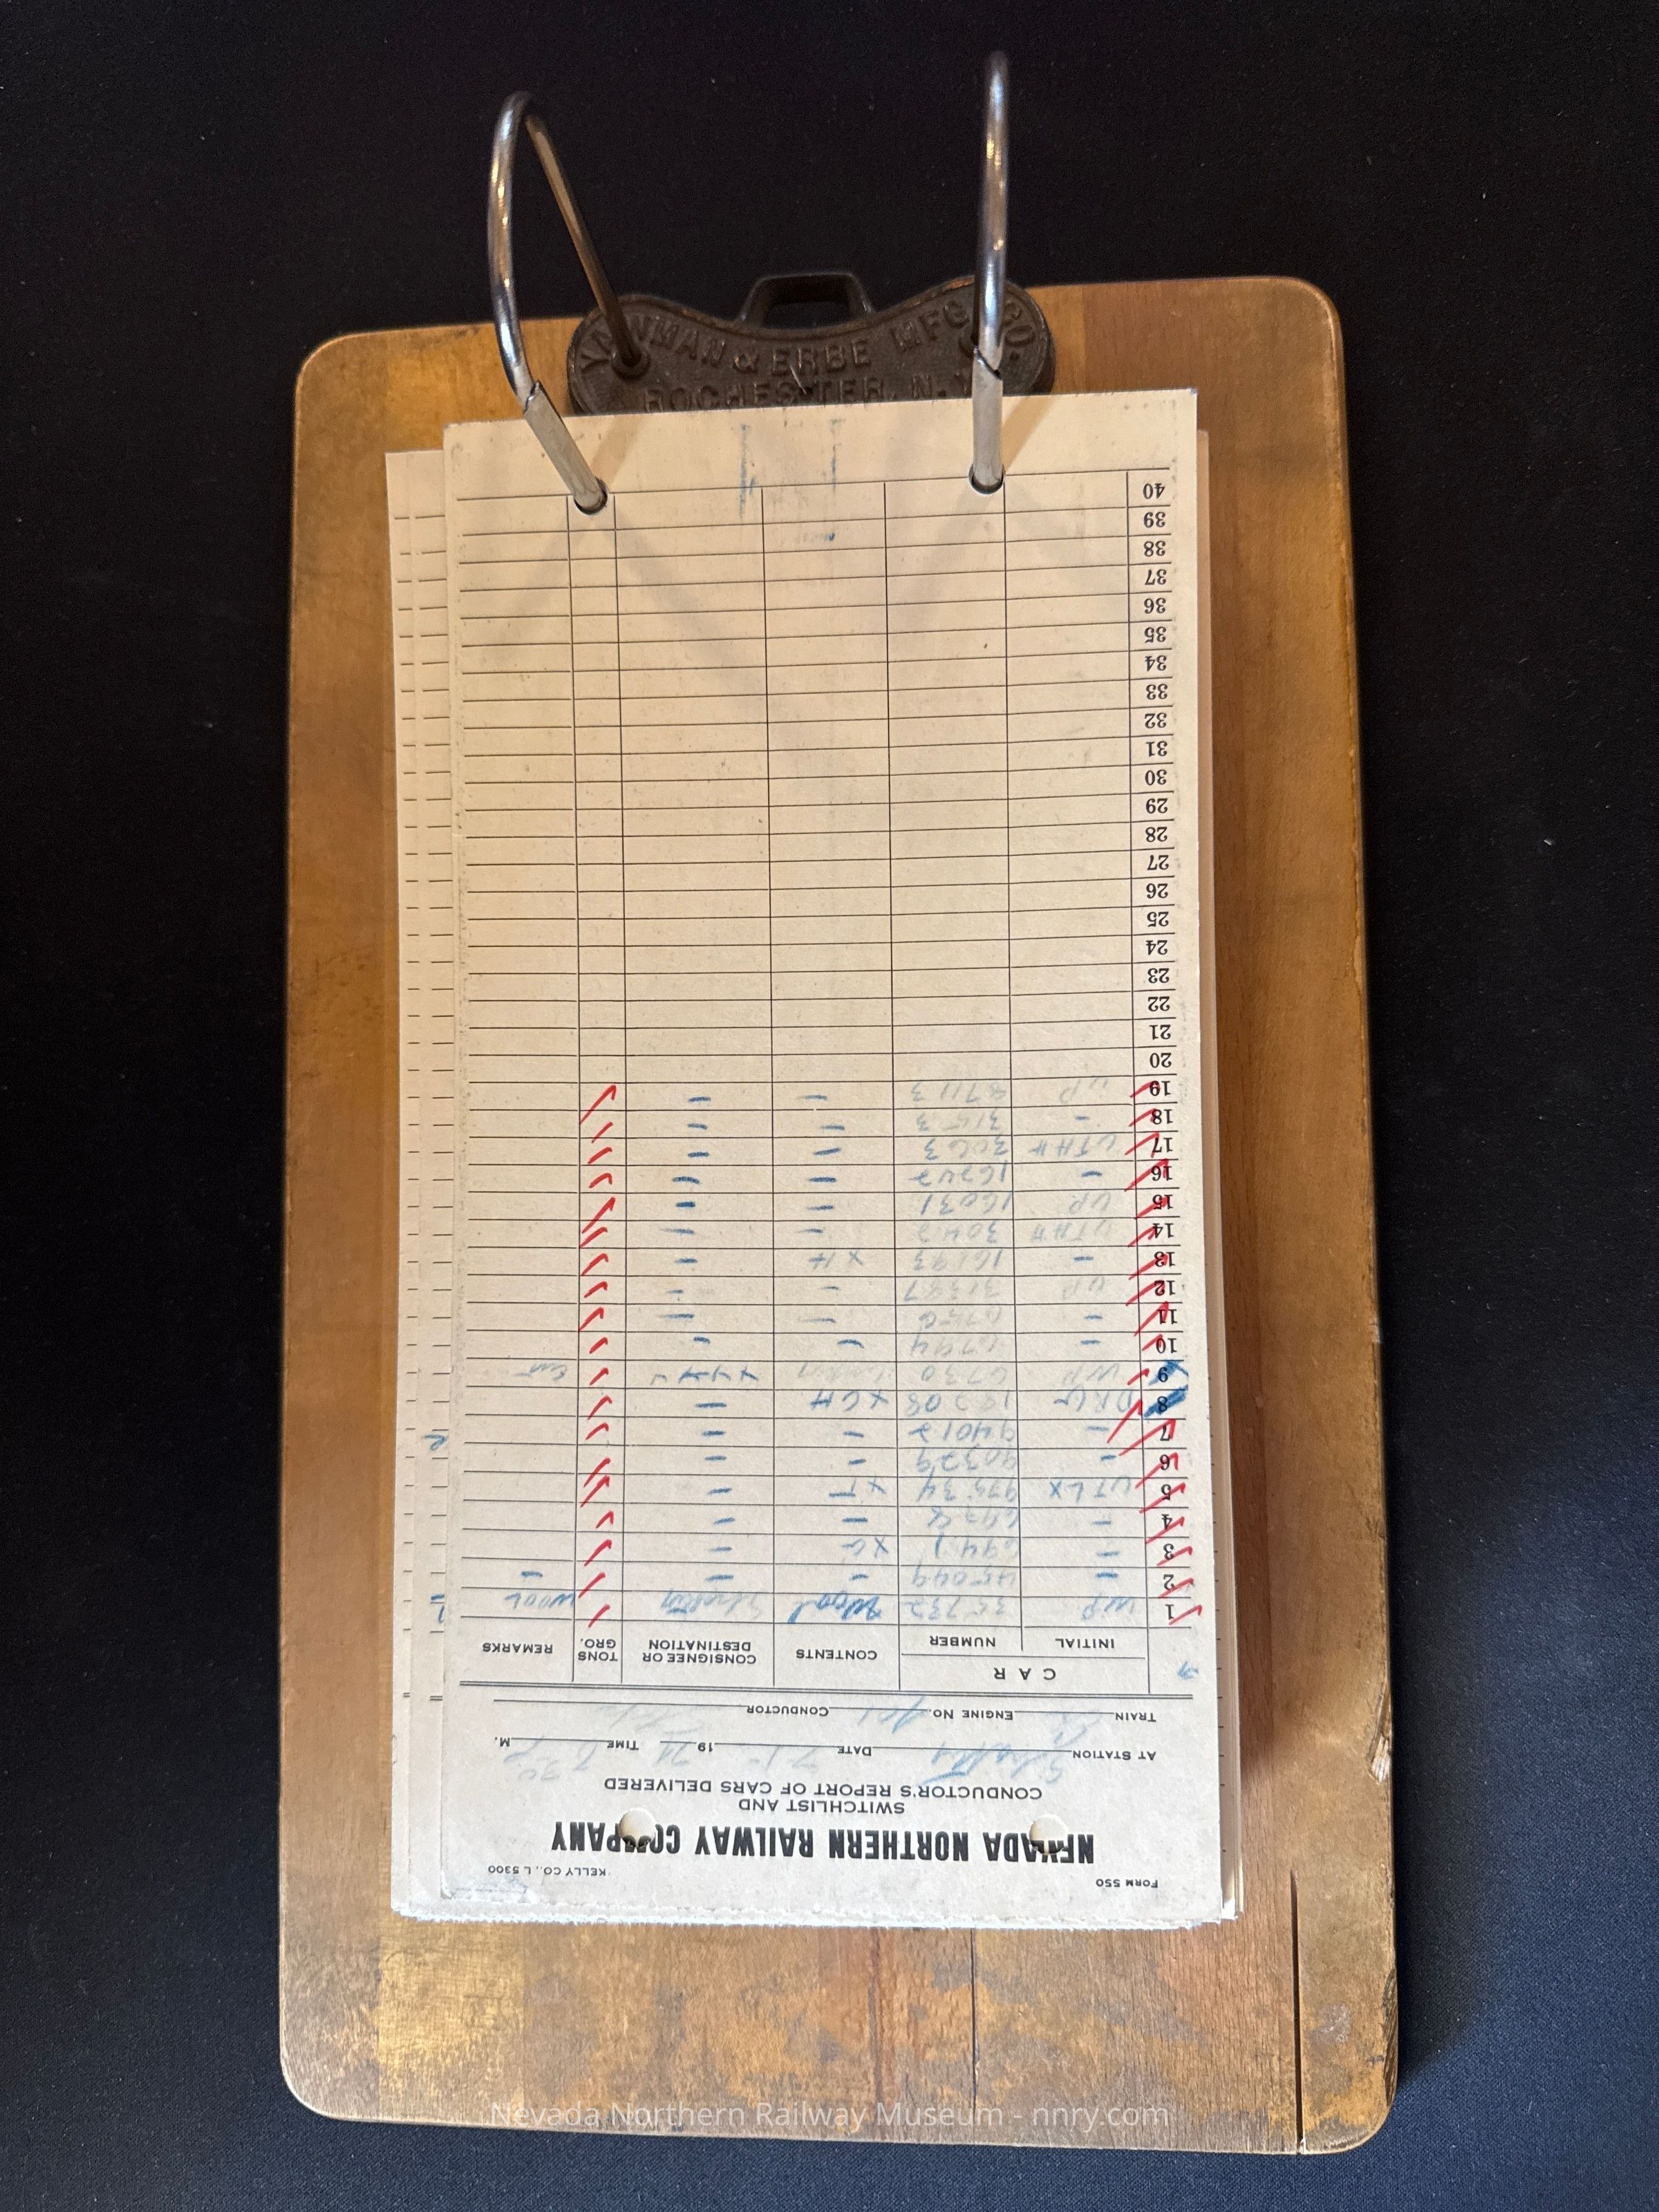 YAWMAN & ERBE MFG. CO.
ROCHESTER, N.Y.
FORM 550 KELLY CO., L 5300
NEVADA NORTHERN RAILWAY COMPANY
SWITCHLIST AND
CONDUCTOR'S REPORT OF CARS DELIVERED
AT STATION DATE 19 TIME M.
TRAIN ENGINE No. CONDUCTOR
CAR
INITIAL NUMBER CONTENTS CONSIGNEE OR DESTINATION TONS GRO. REMARKS
1 WP 35732 Wool Shafter WOOL
2 – 45049 – – –
3 – 6941 XG –
4 – – –
5 UTLX XT –
6 – 90329 – –
7 – 94012 – –
8 DRG XCH –
9 WP 6730
10 – 6794 – –
11 – – –
12 UP – –
13 – 16193 XH –
14 UTAH 3042 – –
15 UP 16031 – –
16 – 16242 – –
17 UTAH 3063 – –
18 – 3153 – –
19 UP – –
20
21
22
23
24
25
26
27
28
29
30
31
32
33
34
35
36
37
38
39
40
Nevada Northern Railway Museum - nnry.com